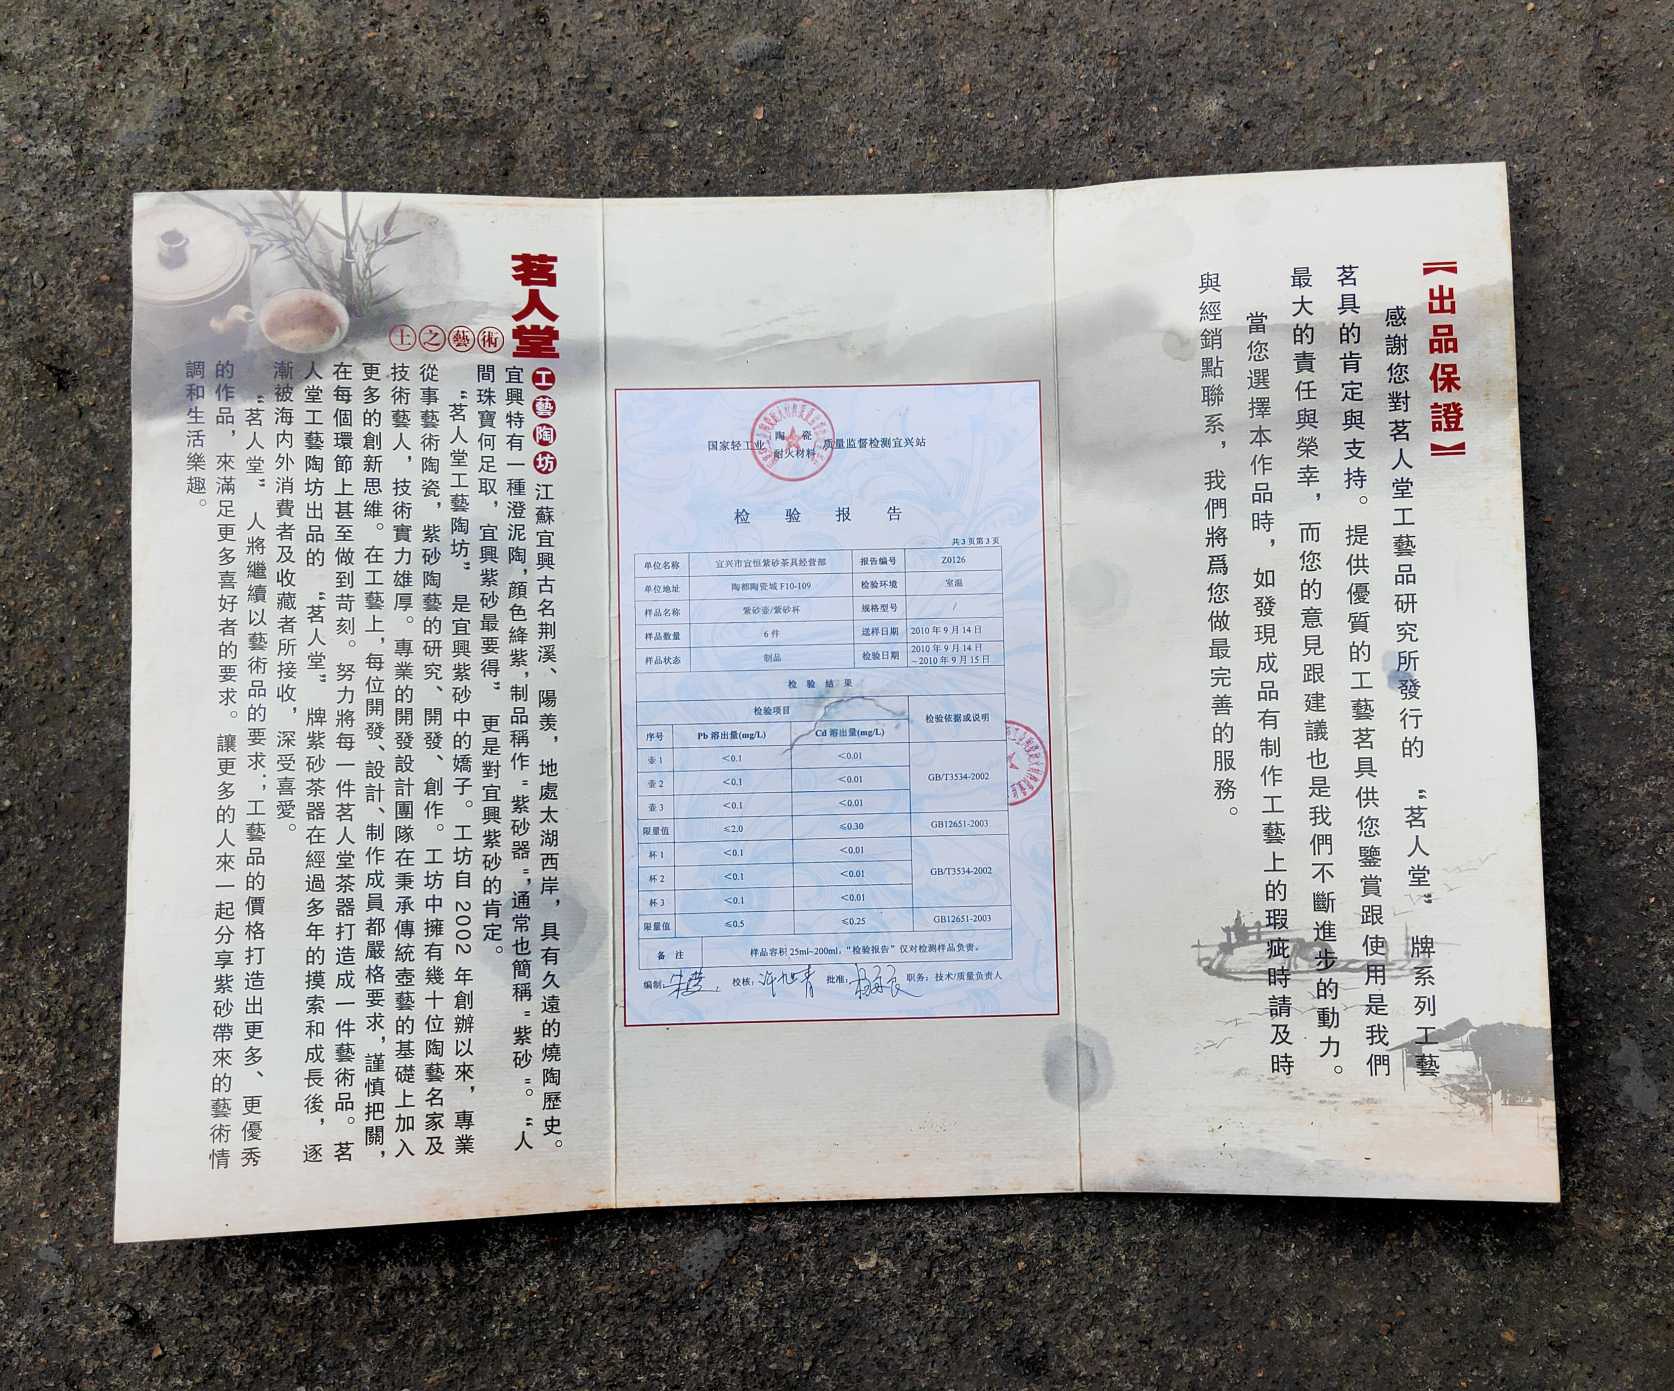 【出品保證】
感謝您對茗人堂工藝品研究所發行的 “茗人堂” 牌系列工藝
茗具的肯定與支持。提供優質的工藝茗具供您鑒賞跟使用是我們
最大的責任與榮幸，而您的意見跟建議也是我們不斷進步的動力。
當您選擇本作品時，如發現成品有制作工藝上的瑕疵時請及時
與經銷點聯系，我們將爲您做最完善的服務。
国家轻工业 陶瓷 耐火材料 质量监督检测宜兴站
检验报告
共3页第3页
单位名称 宜兴市宜恒紫砂茶具经营部 报告编号 Z0126
单位地址 陶都陶瓷城 F10-109 检验环境 室温
样品名称 紫砂壶/紫砂杯 规格型号 /
样品数量 6 件 送样日期 2010 年 9 月 14 日
样品状态 制品 检验日期 2010 年 9 月 14 日
～2010 年 9 月 15 日
检验结果
检验项目 检验依据或说明
序号 Pb 溶出量(mg/L) Cd 溶出量(mg/L)
壶 1 ＜0.1 ＜0.01
壶 2 ＜0.1 ＜0.01 GB/T3534-2002
壶 3 ＜0.1 ＜0.01
限量值 ≤2.0 ≤0.30 GB12651-2003
杯 1 ＜0.1 ＜0.01
杯 2 ＜0.1 ＜0.01 GB/T3534-2002
杯 3 ＜0.1 ＜0.01
限量值 ≤0.5 ≤0.25 GB12651-2003
备注 样品容积 25ml~200ml，“检验报告”仅对检测样品负责。
编制： 校核： 批准： 职务：技术/质量负责人
茗人堂
土之藝術
工藝陶坊 江蘇宜興古名荆溪、陽羨，地處太湖西岸，具有久遠的燒陶歷史。
宜興特有一種澄泥陶，顔色絳紫，制品稱作"紫砂器"，通常也簡稱"紫砂"。“人
間珠寶何足取，宜興紫砂最要得” 更是對宜興紫砂的肯定。
“茗人堂工藝陶坊” 是宜興紫砂中的嬌子。工坊自 2002 年創辦以來，專業
從事藝術陶瓷，紫砂陶藝的研究、開發、創作。工坊中擁有幾十位陶藝名家及
技術藝人，技術實力雄厚。專業的開發設計團隊在秉承傳統壺藝的基礎上加入
更多的創新思維。在工藝上，每位開發、設計、制作成員都嚴格要求，謹慎把關，
在每個環節上甚至做到苛刻。努力將每一件茗人堂茶器打造成一件藝術品。茗
人堂工藝陶坊出品的 “茗人堂” 牌紫砂茶器在經過多年的摸索和成長後，逐
漸被海内外消費者及收藏者所接收，深受喜愛。
“茗人堂” 人將繼續以藝術品的要求；工藝品的價格打造出更多、更優秀
的作品，來滿足更多喜好者的要求。讓更多的人來一起分享紫砂帶來的藝術情
調和生活樂趣。